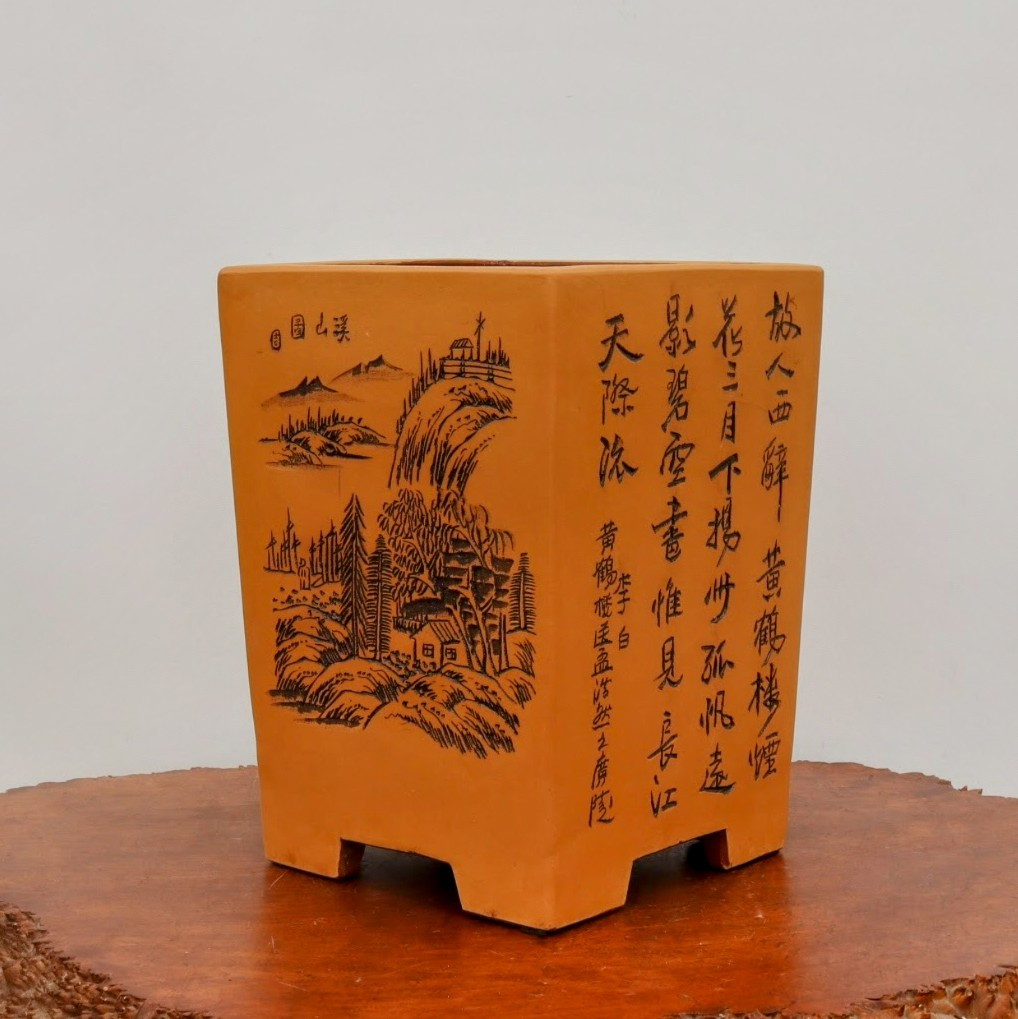 故人西辭黄鶴楼煙
花三月下揚州孤帆遠
影碧空盡惟見長江
天際流
李白
黄鶴楼送孟浩然之廣陵
溪山圖